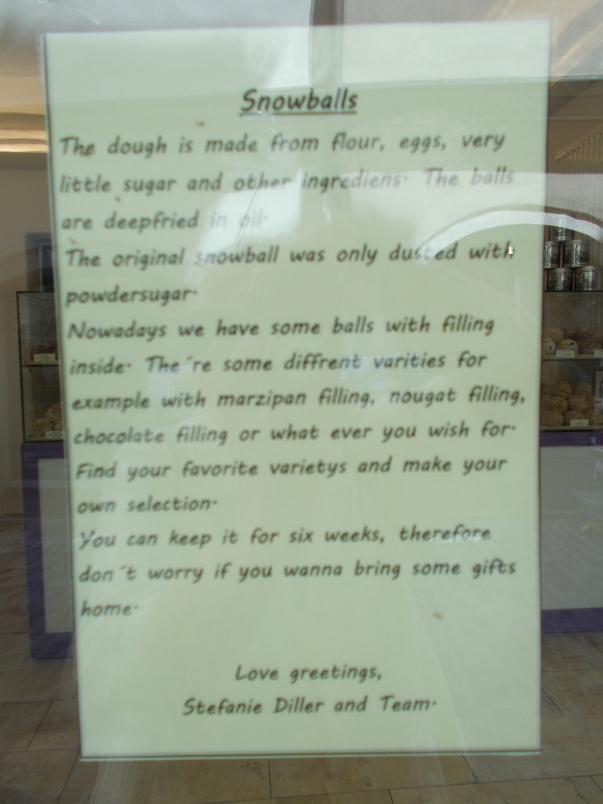 Snowballs
The dough is made from flour, eggs, very
little sugar and other ingrediens. The balls
are deepfried in oil.
The original snowball was only dusted with
powdersugar.
Nowadays we have some balls with filling
inside. The´re some diffrent varities for
example with marzipan filling, nougat filling,
chocolate filling or what ever you wish for.
Find your favorite varietys and make your
own selection.
You can keep it for six weeks, therefore
don´t worry if you wanna bring some gifts
home.
Love greetings,
Stefanie Diller and Team.